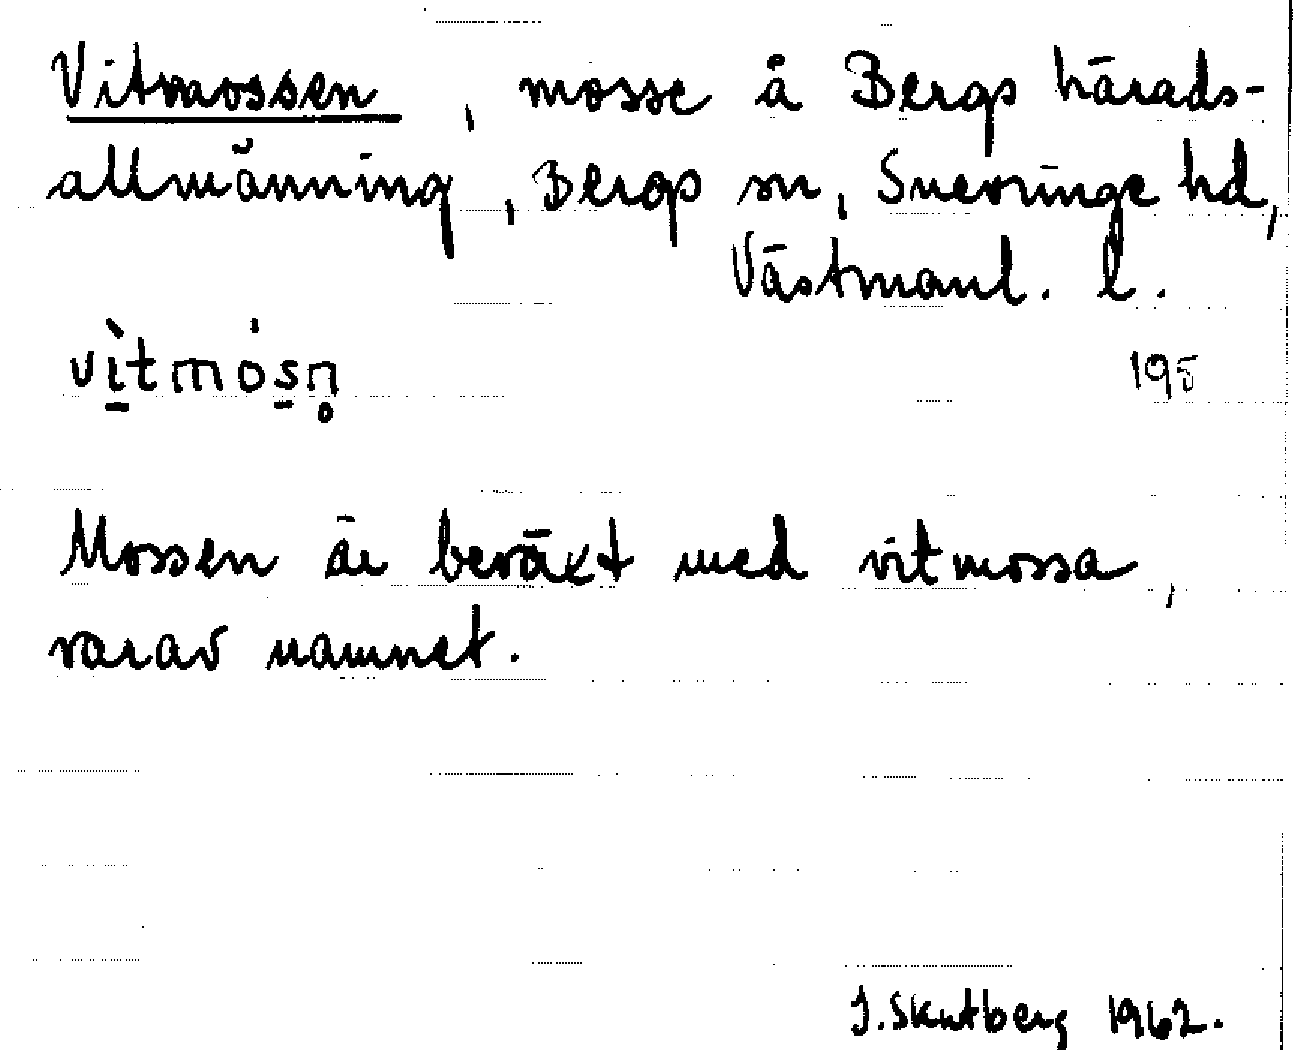 Vitmossen, mosse å Bergs härads-
allmänning, Bergs sn, Snevringe hd,
Västmanl. l.
vìtmósn̥
195
Mossen är beväxt med vitmossa,
varav namnet.
J. Skutberg 1962.